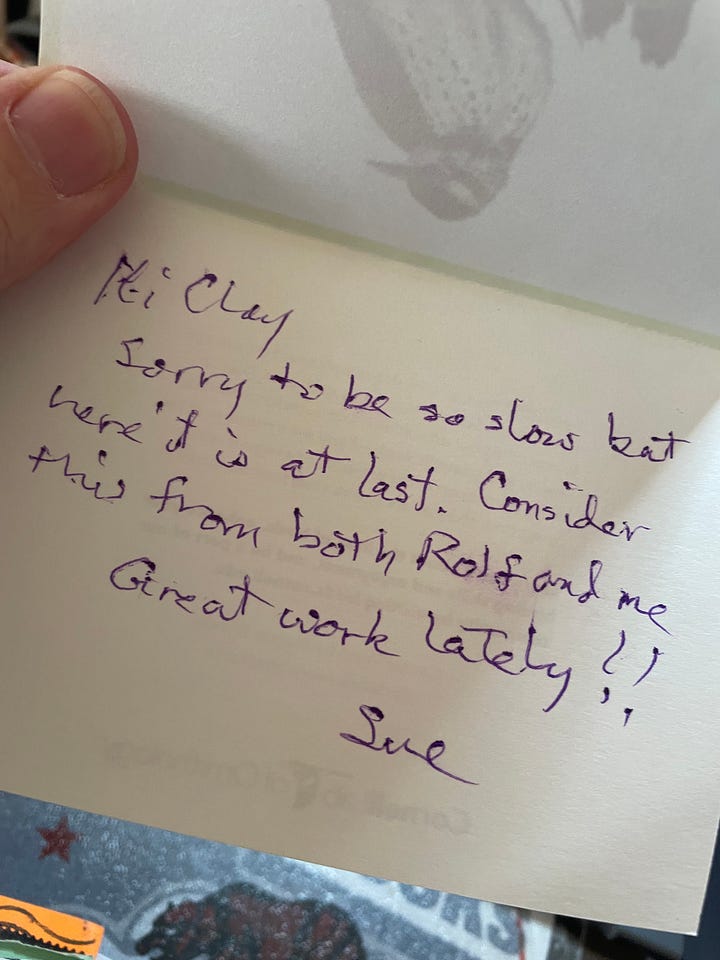 Hi Clay
Sorry to be so slow but
here it is at last. Consider
this from both Rolf and me
Great work lately!!
Sue